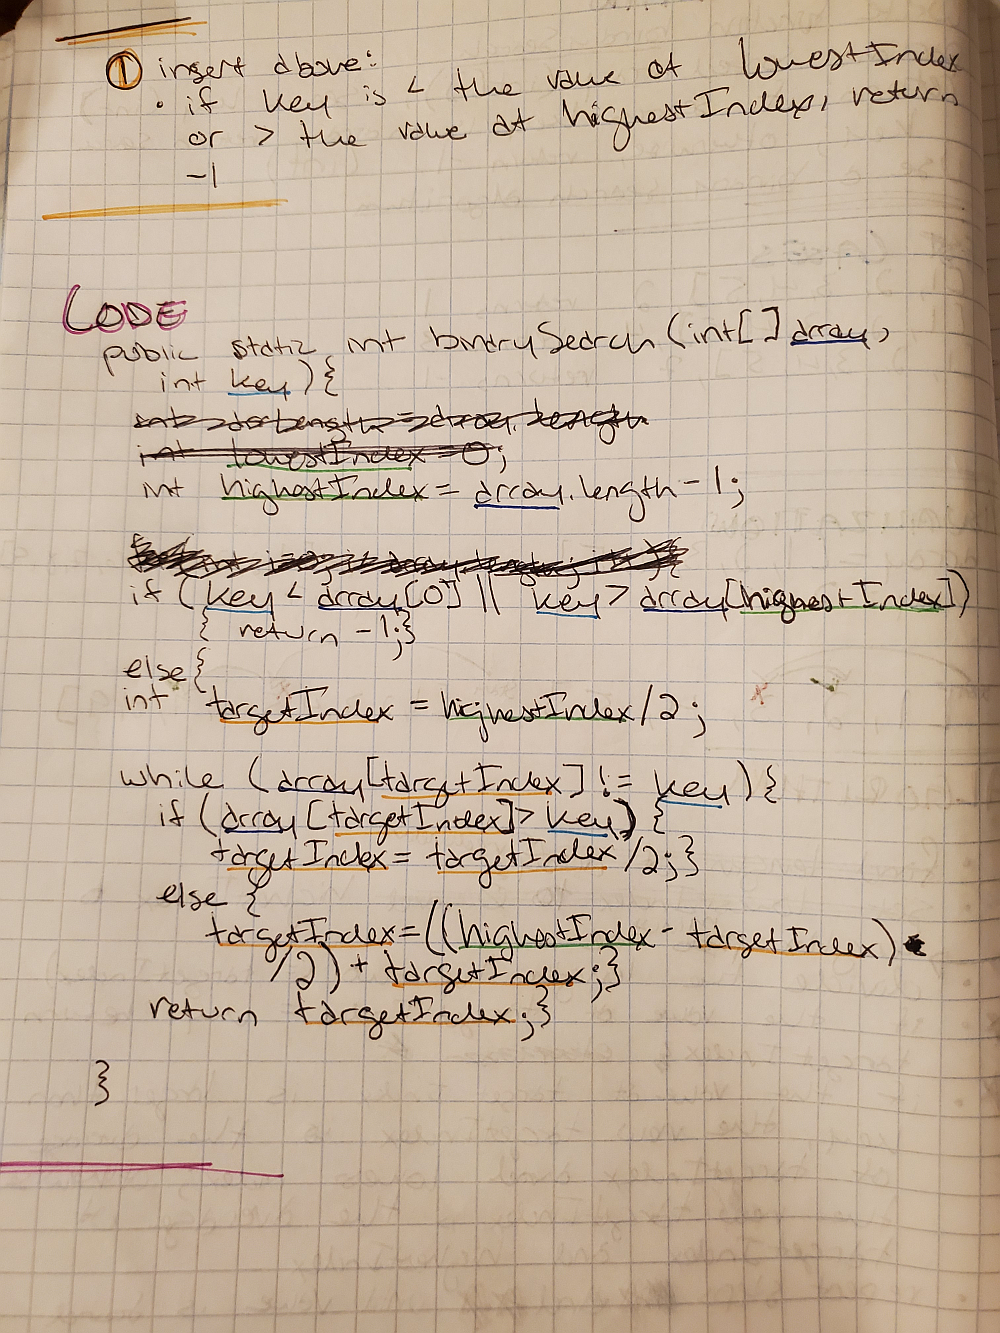 ① insert above:
• if key is < the value at lowestIndex
or > the value at highestIndex, return
-1
CODE
public static int binarySearch (int[] array,
int key){
int arrLength = array.length
int lowestIndex = 0;
int highestIndex = array.length - 1;
if (key < array[0] || key > array[highestIndex])
{ return -1;}
else{
int targetIndex = highestIndex/2;
while (array[targetIndex] != key){
if (array[targetIndex] > key) {
targetIndex = targetIndex/2;}
else {
targetIndex=((highestIndex - targetIndex)
/2) + targetIndex;}
return targetIndex;}
}